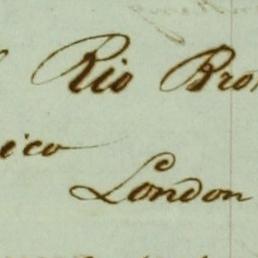 Rio Bro
ico
London